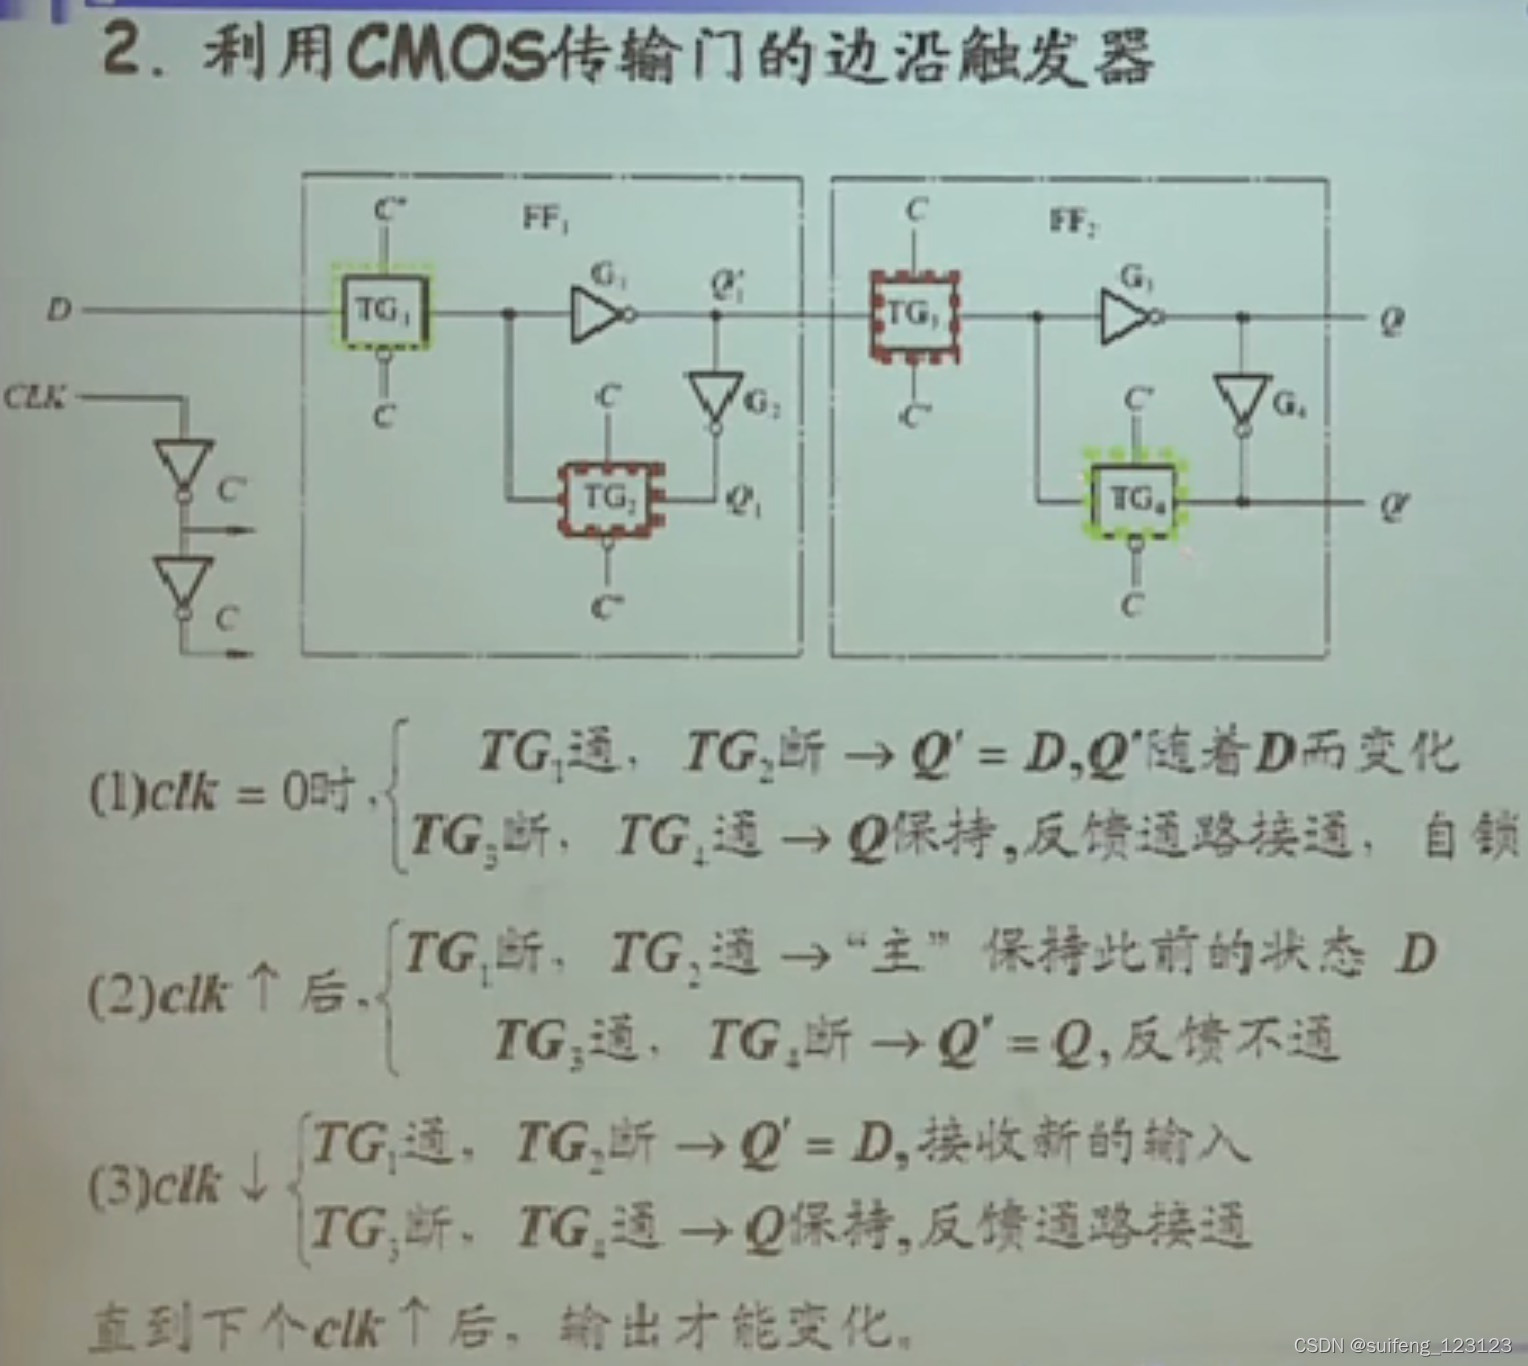 2. 利用CMOS传输门的边沿触发器
C' FF₁ C FF₂
TG₁ G₁ Q₁' TG₃ G₃ Q
D
CLK C C G₂ C' C' G₄
C' TG₂ Q₁ TG₄ Q'
C C' C
(1)clk = 0时, TG₁通, TG₂断 → Q' = D,Q'随着D而变化
TG₃断, TG₄通 → Q保持,反馈通路接通, 自锁
(2)clk ↑ 后, TG₁断, TG₂通 → “主” 保持此前的状态 D
TG₃通, TG₄断 → Q' = Q,反馈不通
(3)clk ↓ TG₁通, TG₂断 → Q' = D,接收新的输入
TG₃断, TG₄通 → Q保持,反馈通路接通
直到下个clk ↑ 后, 输出才能变化。
CSDN @suifeng_123123